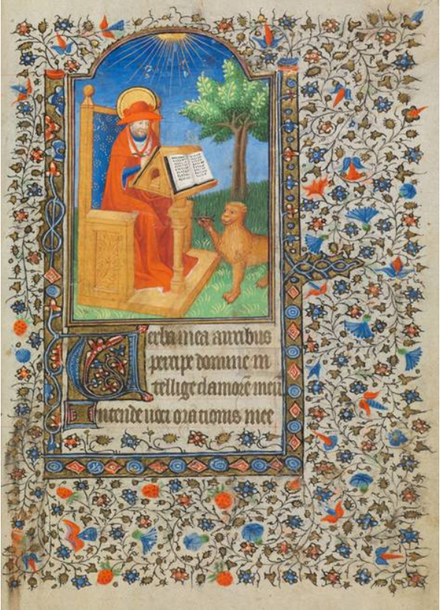 Verba mea auribus
percipe domine in
tellige clamorē meū
Intende voci orationis mee